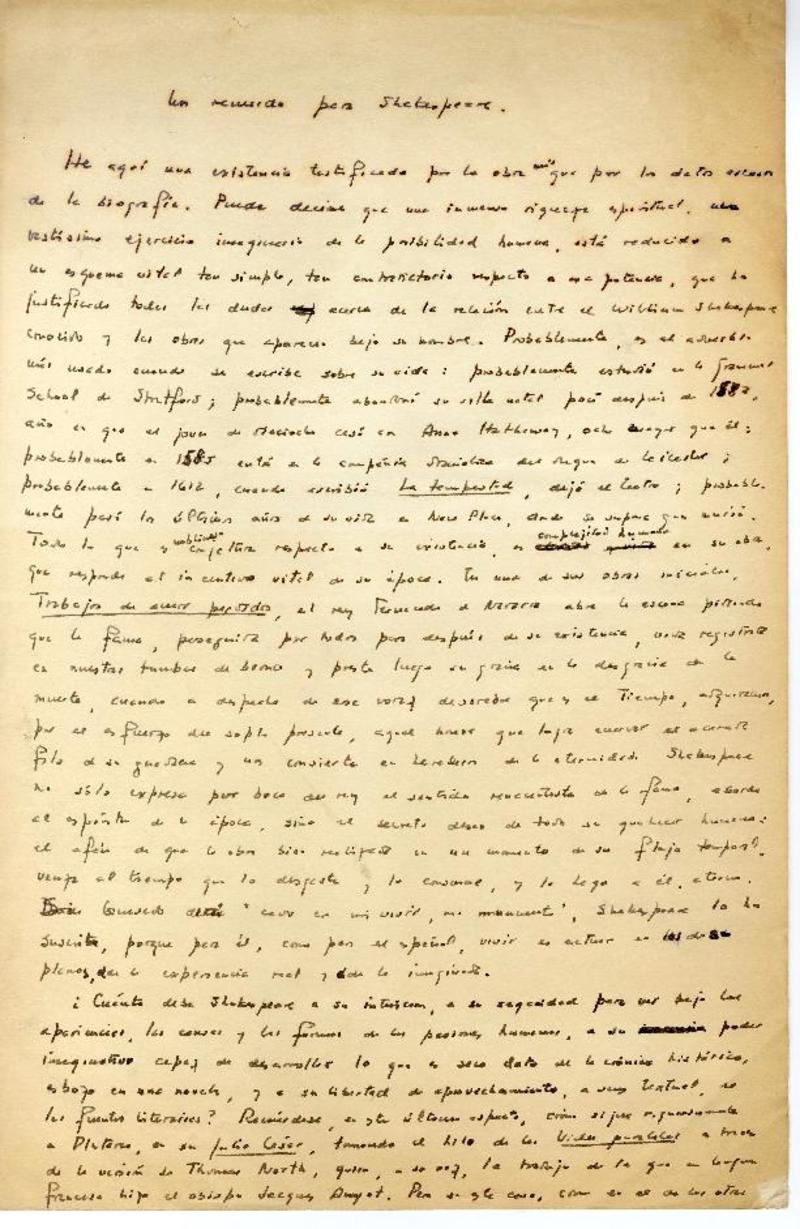 Un recuerdo para Shakespeare.
He aquí una existencia testificada por la obra más que por los datos escasos
de la biografía. Puede decirse que una inmensa riqueza espiritual, un
vastísimo ejercicio imaginario de la posibilidad humana, está reducido a
un esquema vital tan simple, tan contradictorio respecto a esa potencia, que ha
justificado todas las dudas acerca de la relación entre el William Shakespeare
conocido y las obras que aparecen bajo su nombre. Probablemente, es el adverbio
más usado cuando se escribe sobre su vida: probablemente estudió en la Grammar
School de Stratford; probablemente abandonó su villa natal poco después de 1582,
año en que el joven de dieciocho casó con Anne Hathaway, ocho mayor que él;
probablemente en 1585 entró en la compañía dramática del de Leicester;
probablemente en 1612, cuando escribió La tempestad, dejó el teatro; probable-
mente pasó los últimos años de su vida en New Place, donde se supone que murió.
Todo lo que es conjetura respecto a su existencia, es complejidad humana en su obra,
que responde al incentivo vital de su época. En una de sus obras iniciales,
Trabajos de amor perdidos, el rey Fernando de Navarra abre la escena pidiendo
que la fama, perseguida por todos para después de su existencia, viva registrada
en nuestras tumbas de bronce y preste luego su gracia en la desgracia de la
muerte, cuando a despecho de ese voraz devorador que es el Tiempo, adquiramos,
por el esfuerzo del soplo presente, aquel honor que logra embotar el acerado
filo de su guadaña y nos convierta en herederos de la eternidad. Shakespeare
no sólo expresa por boca del rey el sentido renacentista de la fama, acorde
al espíritu de la época, sino el secreto deseo de todo su quehacer humano:
el afán de que la obra bien realizada en un momento de su fluja temporal,
venza al tiempo que la desgasta y la consume, y la haga a él, eterna.
Quevedo "cavo en mi vivir, mi monumento", Shakespeare lo ha
suscrito, porque para él, como para el español, vivir es actuar en los dos
planos, de la experiencia real y de la imaginada.
¿Cuánto debe Shakespeare a su intuición, a su sagacidad para ver bajo las
apariencias, las causas y las formas de las pasiones humanas, a su poder
imaginativo capaz de desarrollar lo que es seco dato de la crónica histórica,
esbozo en una novela, y a su libertad de aprovechamiento, a veces textual, de
las fuentes literarias? Recuérdese, en este último aspecto, cómo sigue rigurosamente
a Plutarco, en su Julio César, tomando el hilo de las Vidas paralelas a través
de la versión de Thomas North, quien, a su vez, la trabaja de la que en lengua
francesa hizo el obispo Jacques Amyot. Pero en este caso, como en el de las otras